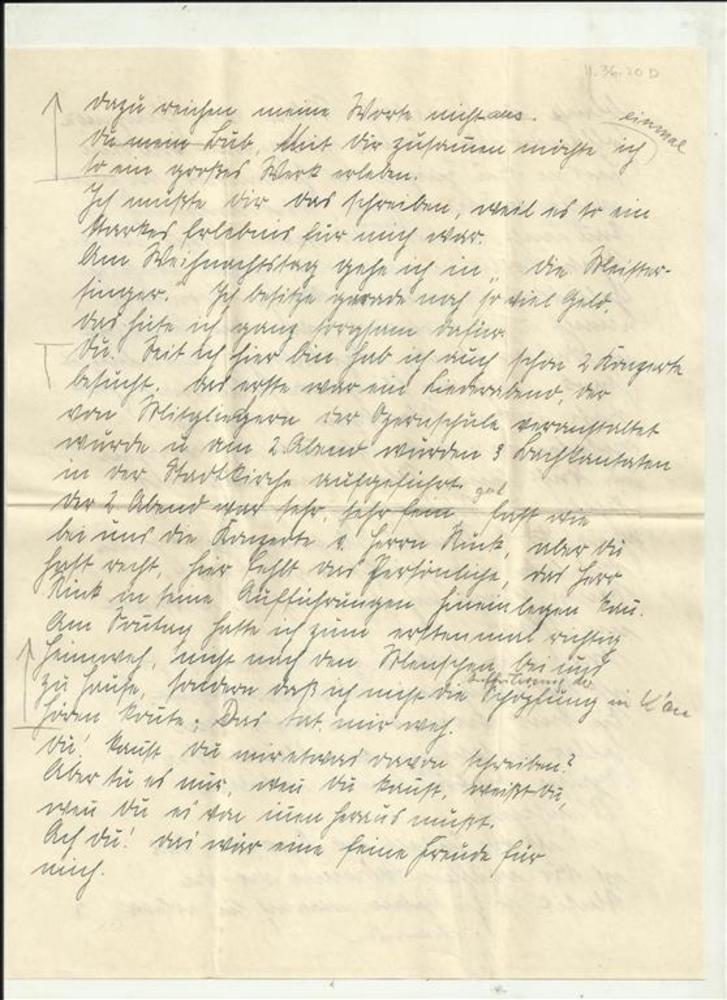 11.36.20 D
dazu reichen meine Worte nicht aus.
Du mein Bub, Mit Dir zusammen möchte ich einmal
so ein großes Werk erleben.
Ich mußte dir das schreiben, weil es so ein
starkes Erlebnis für mich war.
Am Weihnachtstag gehe ich in „die Meister-
singer." Ich besitze gerade noch so viel Geld,
das hüte ich ganz sorgsam dafür.
Du! Seit ich hier bin hab ich auch schon 2 Konzerte
besucht. Das erste war ein Liederabend, der
von Mitgliedern der Opernschule veranstaltet
wurde u am 2. Abend wurden 3 Bachkantaten
in der Stadtkirche aufgeführt.
Der 2 Abend war sehr, sehr fein gut fast wie
bei uns die Konzerte v. Herrn Rink, aber du
hast recht, hier fehlt das Persönliche, das Herr
Rink in seine Aufführungen hineinlegen kan̄.
Am Sontag hatte ich zum erstenmal richtig
Heimweh, nicht nach den Menschen bei uns
zu Hause, sondern daß ich nicht die Schöpfung in
hören konte. Das tat mir weh.
Du! kanst du mir etwas davon schreiben?
Aber tu es nur, wen du kanst, weißt du,
wen du es von inen heraus mußt.
Ach du! das wär eine feine Freude für
mich.